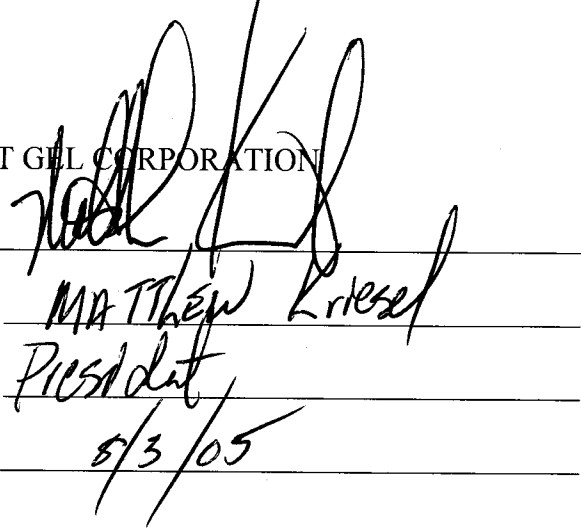 T GEL CORPORATION
MATTHEW Kriesel
President
8/3/05